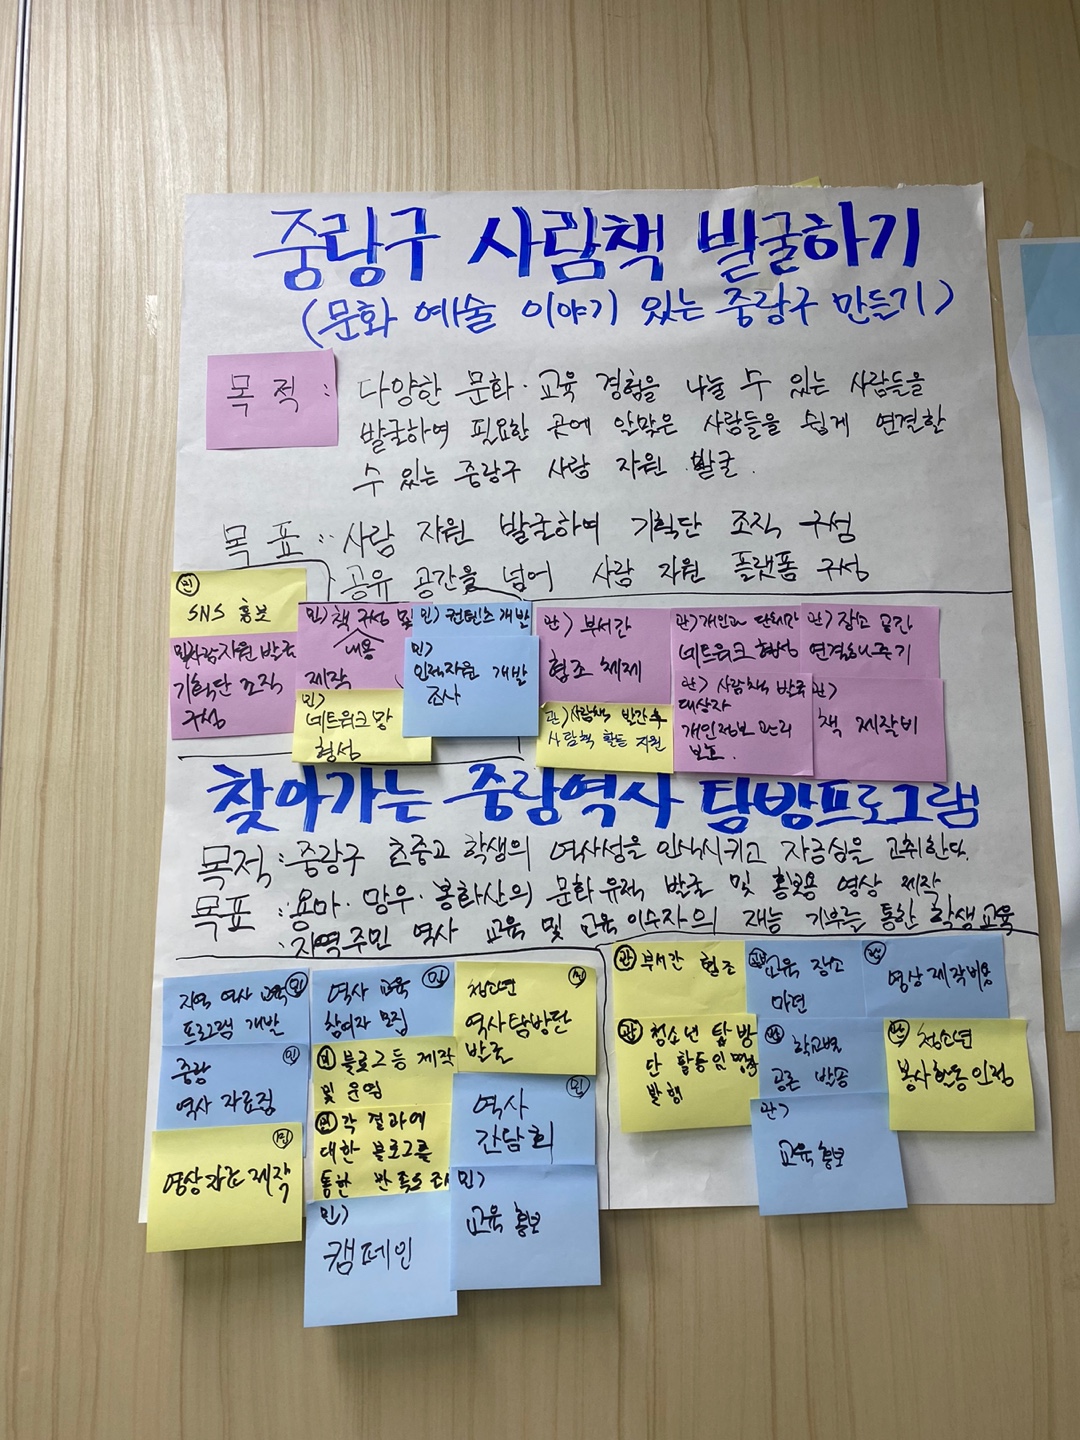 중랑구 사람책 발굴하기
(문화 예술 이야기 있는 중랑구 만들기)
목적 : 다양한 문화·교육 경험을 나눌 수 있는 사람들을
발굴하여 필요한 곳에 알맞은 사람들을 쉽게 연결할
수 있는 중랑구 사람 자원 발굴.
목표 : 사람 자원 발굴하여 기획단 조직 구성
공유 공간을 넘어 사람 자원 플랫폼 구성
민
SNS 홍보
민)사람자원 발굴
기획단 조직
구성
민) 책 구성 및
내용
제작
민)
네트워크 망
형성
민) 컨텐츠 개발
민)
인적자원 개발
조사
관) 부서간
협조 체제
관) 사람책 발간 후
사람책 활동 지원
관) 개인과 단체간
네트워크 형성
관) 사람책 발굴
대상자
개인정보 관리
보호.
관) 장소 공간
연결해주기
관)
책 제작비
찾아가는 중랑역사 탐방프로그램
목적 : 중랑구 초중고 학생의 역사성을 인식시키고 자긍심을 고취한다.
목표 : 용마·망우·봉화산의 문화유적 발굴 및 홍보용 영상 제작
: 지역주민 역사 교육 및 교육 이수자의 재능 기부를 통한 학생교육
지역 역사 교육 민
프로그램 개발
중랑 민
역사 자료집
민
영상자료 제작
역사 교육 민
참여자 모집
민 블로그 등 제작
및 운영
민 각 결과에
대한 블로그를
통한 만족도 조사
민)
캠페인
청소년
역사탐방단
발굴
역사 민
간담회
민)
교육 홍보
관 부서간 협조
관 청소년 탐방
단 활동
발행
교육 장소
마련
관 학교별
공문 발송
관)
교육 홍보
관
영상 제작비용
관 청소년
봉사활동 인정